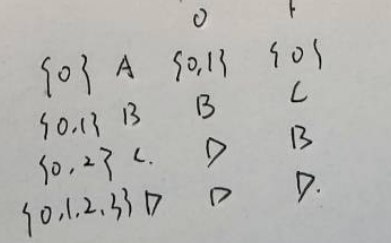 0 1
{0} A {0,1} {0}
{0,1} B B C
{0,2} C. D B
{0,1,2,3} D D D.